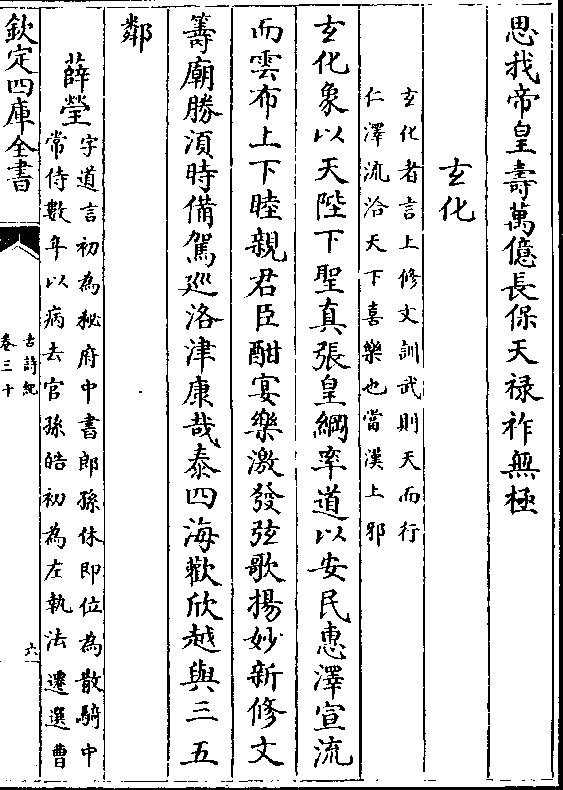 思我帝皇壽萬億長保天禄祚無極
玄化
玄化者言上修文訓武則天而行
仁澤流洽天下喜樂也當漢上邪
玄化象以天陛下聖真張皇綱率道以安民惠澤宣流
而雲布上下睦親君臣酣宴樂激發弦歌揚妙新修文
籌廟勝須時備駕巡洛津康哉泰四海歡欣越與三五
鄰
薛瑩
字道言初為秘府中書郎孫休即位為散騎中
常侍數年以病去官孫皓初為左執法遷選曹
欽定四庫全書
古詩紀
卷三十
六